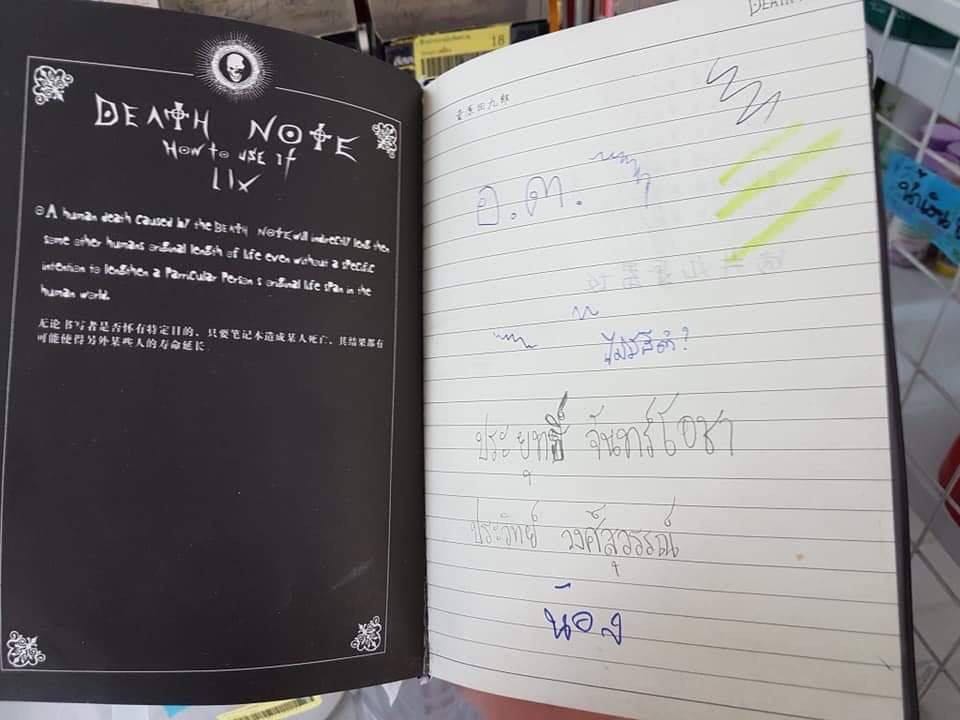 DEATH NOTE
HOW to USE if
LIX
A human death caused by the DEATH NOTE will indirectly lengthen
some other humans original length of life even without a specific
intention to lengthen a particular person s original life span in the
human world.
无论书写者是否怀有特定目的，只要笔记本造成某人死亡，其结果都有
可能使得另外某些人的寿命延长
18
DEATH
ไม่มีสีดำ?
ประยุทธ์ จันทร์โอชา
ประวิทย์ วงศ์สุวรรณ์
น้อง